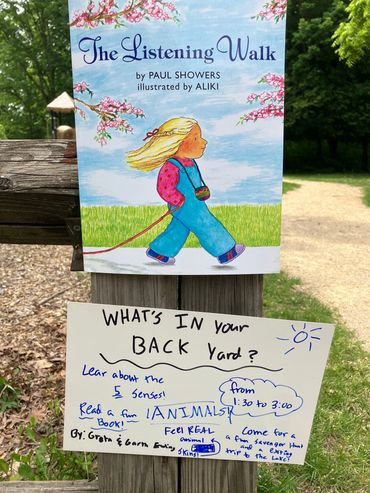 The Listening Walk
by PAUL SHOWERS
illustrated by ALIKI
WHAT'S IN Your
BACK Yard?
Lear about the
5 Senses!
from
1:30 to 3:00
Read a fun
Book!
ANIMALS
FEEL REAL
animal
Skins!
Come for a
a fun scavenger hunt
and a exiting
trip to the Lake!
By: Greta & Garth